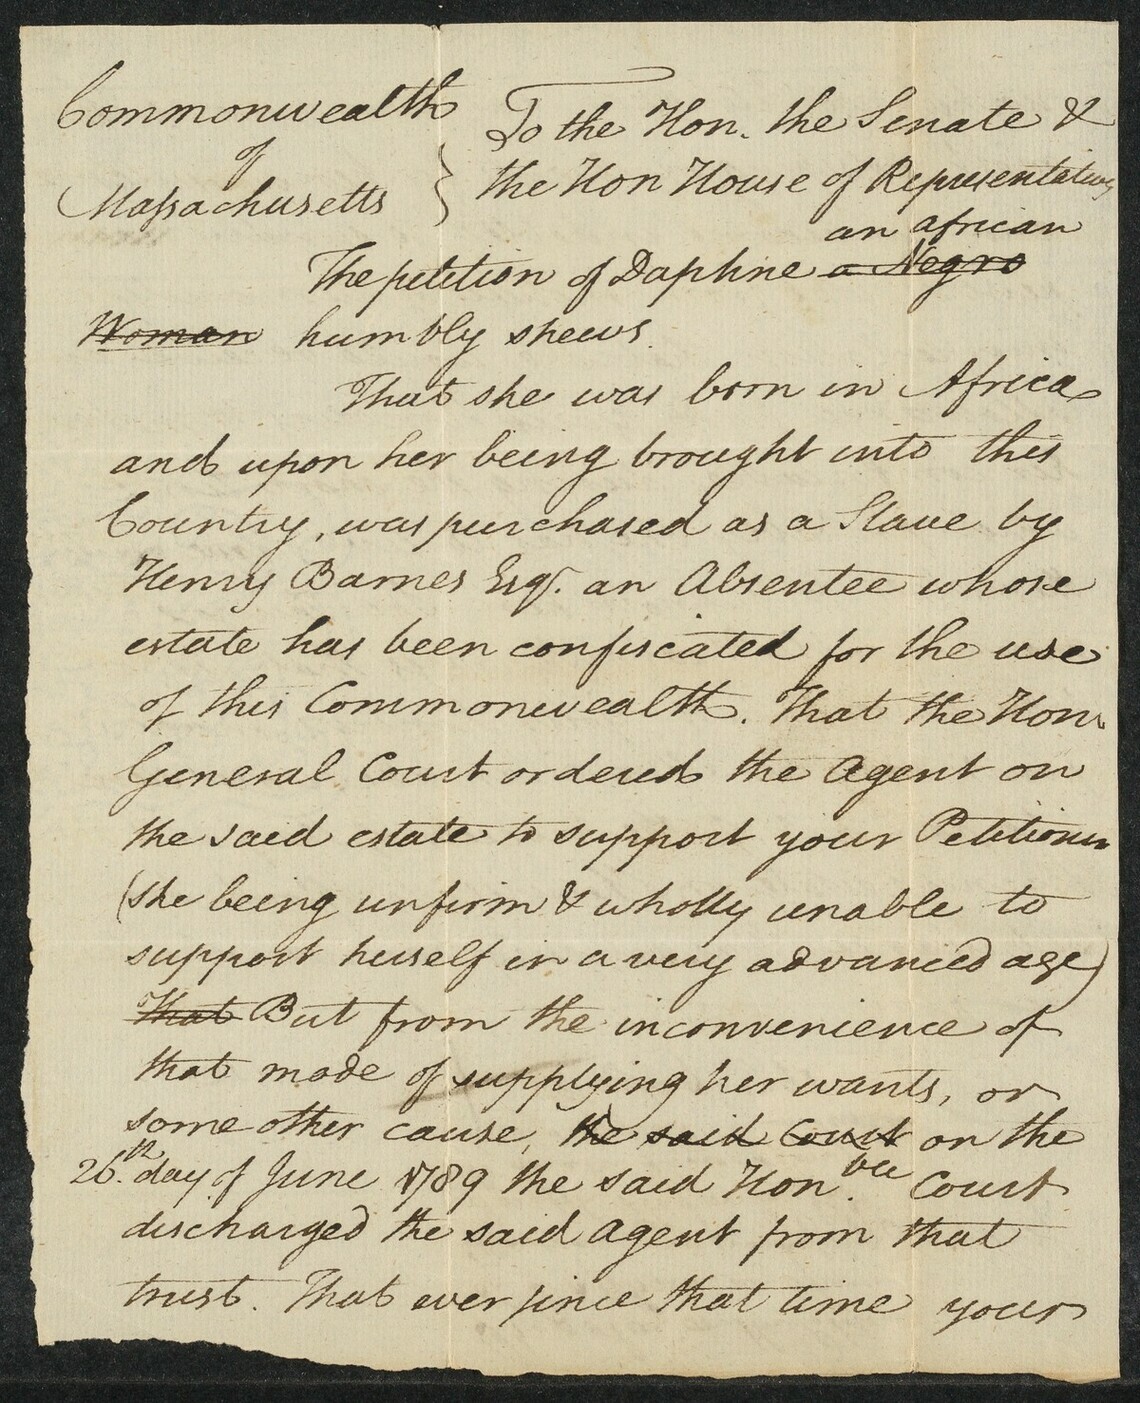 Commonwealth
of
Massachusetts
} To the Hon. the Senate &
the Hon House of Representatives
an african
The petition of Daphne a Negro
Woman humbly shews.
That she was born in Africa
and upon her being brought into this
Country, was purchased as a Slave by
Henry Barnes Esqr. an Absentee whose
estate has been confiscated for the use
of this Commonwealth. That the Hon.
General Court ordered the Agent on
the said estate to support your Petitioner
(she being infirm & wholly unable to
support herself in a very advanced age)
That But from the inconvenience of
that mode of supplying her wants, or
some other cause, the said Court on the
26.th day of June 1789 the said Hon.ble Court
discharged the said Agent from that
trust. That ever since that time your